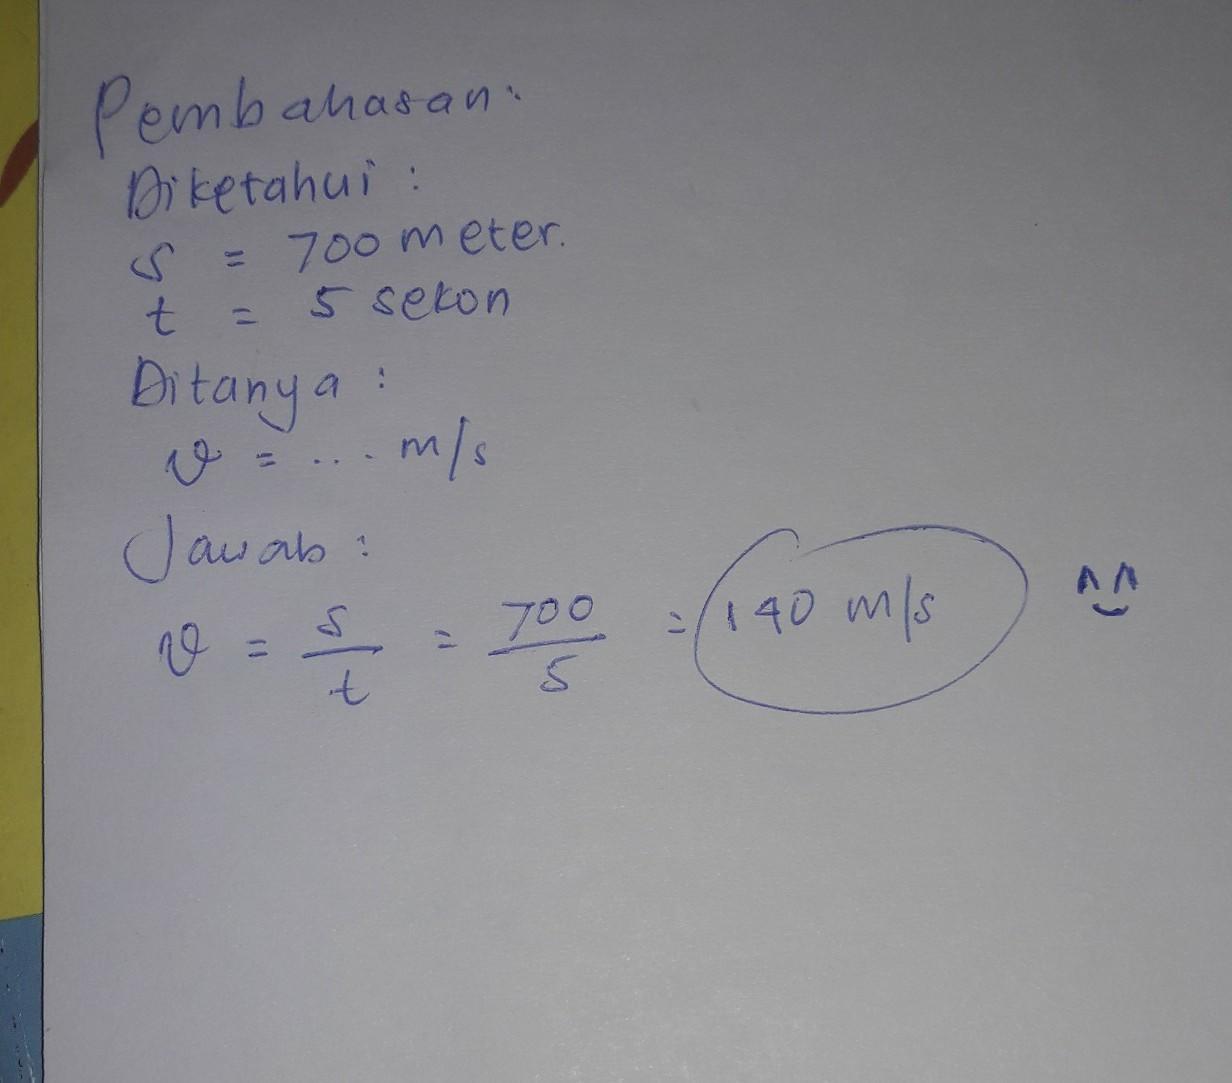 Pembahasan:
Diketahui :
s = 700 meter.
t = 5 sekon
Ditanya :
v = ... m/s
Jawab :
v = s/t = 700/5 = 140 m/s ^^